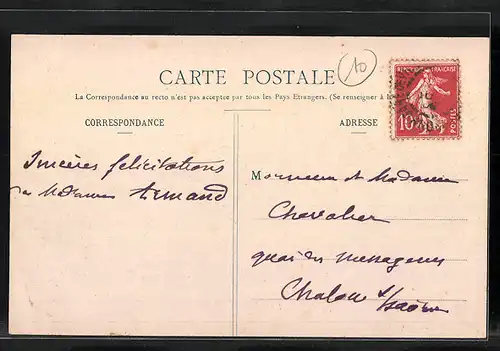 10
CARTE POSTALE
La Correspondance au recto n'est pas acceptée par tous les Pays Etrangers. (Se renseigner à la
CORRESPONDANCE
ADRESSE
REPUBLIQUE FRANÇAISE
10
POSTES
Sincères félicitations
a Madame Armand
Monsieur et Madame
Chevalier
quai des messageries
Chalon s/Saône